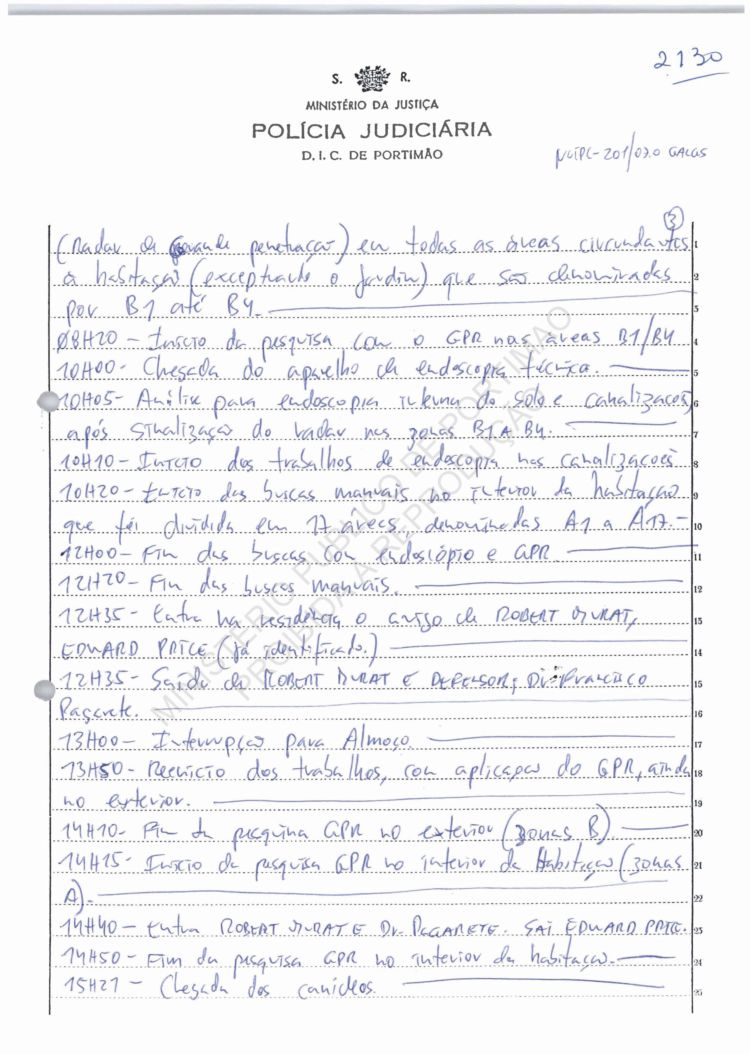 2130
S. R.
MINISTÉRIO DA JUSTIÇA
POLÍCIA JUDICIÁRIA
D. I. C. DE PORTIMÃO
NUIPC-201/07.0 GALGS
3
(Radar de grande penetração) em todas as áreas circundantes 1
à habitação (exceptuando o jardim) que são denominadas 2
por B1 até B4. 3
08H20 - Início da pesquisa com o GPR nas áreas B1/B4 4
10H00 - Chegada do aparelho de endoscopia técnica. 5
10H05 - Análise para endoscopia interna do solo e canalizações 6
após sinalização do radar nas zonas B1 A B4. 7
10H10 - Início dos trabalhos de endoscopia nas canalizações 8
10H20 - Início das buscas manuais no interior da habitação 9
que foi dividida em 17 áreas, denominadas A1 a A17. - 10
12H00 - Fim das buscas com endoscópio e GPR 11
12H20 - Fim das buscas manuais. 12
12H35 - Entra na residência o amigo de ROBERT MURAT, 13
EDWARD PRICE (já identificado.) 14
12H35 - Saída de ROBERT MURAT E DEFENSOR, Dr. Francisco 15
Pagarete. 16
13H00 - Interrupção para Almoço. 17
13H50 - Reenício dos trabalhos, com aplicação do GPR, ainda 18
no exterior. 19
14H10 - Fim da pesquisa GPR no exterior (zonas B) 20
14H15 - Início da pesquisa GPR no interior da Habitação (zonas 21
A). 22
14H40 - Entra ROBERT MURAT E Dr. PAGARETE. SAI EDWARD PRICE. 23
14H50 - Fim da pesquisa GPR no interior da habitação. 24
15H21 - Chegada dos canídeos. 25
MINISTÉRIO PÚBLICO DE PORTIMÃO
PROIBIDA A REPRODUÇÃO